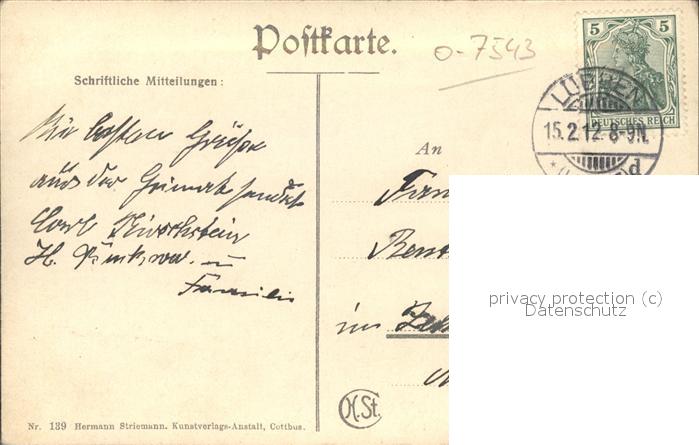 Postkarte.
o-7543
5 5
DEUTSCHES REICH
LÜBBEN
15.2.12. 8-9N.
Schriftliche Mitteilungen:
Die besten Grüße
aus der Heimat sendet
Carl
H. u
Familie
An
Fam
Rent
im
privacy protection (c)
Datenschutz
H.St.
Nr. 139 Hermann Striemann. Kunstverlags-Anstalt, Cottbus.